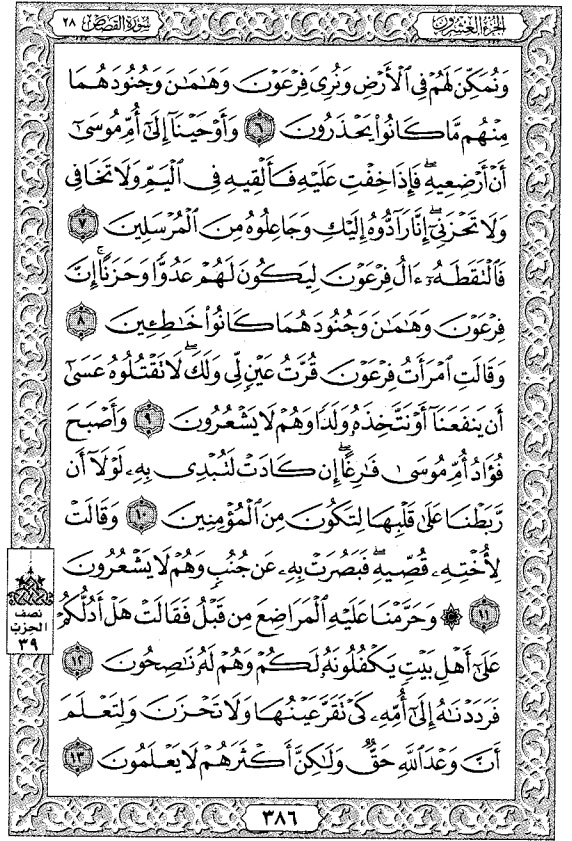 الجزء العشرون
سورة القصص ٢٨
وَنُمَكِّنَ لَهُمْ فِي ٱلْأَرْضِ وَنُرِيَ فِرْعَوْنَ وَهَـٰمَـٰنَ وَجُنُودَهُمَا
مِنْهُم مَّا كَانُوا۟ يَحْذَرُونَ ٦ وَأَوْحَيْنَآ إِلَىٰٓ أُمِّ مُوسَىٰٓ
أَنْ أَرْضِعِيهِ ۖ فَإِذَا خِفْتِ عَلَيْهِ فَأَلْقِيهِ فِي ٱلْيَمِّ وَلَا تَخَافِي
وَلَا تَحْزَنِيٓ ۖ إِنَّا رَآدُّوهُ إِلَيْكِ وَجَاعِلُوهُ مِنَ ٱلْمُرْسَلِينَ ٧
فَٱلْتَقَطَهُۥٓ ءَالُ فِرْعَوْنَ لِيَكُونَ لَهُمْ عَدُوًّا وَحَزَنًا ۗ إِنَّ
فِرْعَوْنَ وَهَـٰمَـٰنَ وَجُنُودَهُمَا كَانُوا۟ خَـٰطِـِٔينَ ٨
وَقَالَتِ ٱمْرَأَتُ فِرْعَوْنَ قُرَّتُ عَيْنٍ لِّي وَلَكَ ۖ لَا تَقْتُلُوهُ عَسَىٰٓ
أَن يَنفَعَنَآ أَوْ نَتَّخِذَهُۥ وَلَدًا وَهُمْ لَا يَشْعُرُونَ ٩ وَأَصْبَحَ
فُؤَادُ أُمِّ مُوسَىٰ فَـٰرِغًا ۖ إِن كَادَتْ لَتُبْدِي بِهِۦ لَوْلَآ أَن
رَّبَطْنَا عَلَىٰ قَلْبِهَا لِتَكُونَ مِنَ ٱلْمُؤْمِنِينَ ١٠ وَقَالَتْ
لِأُخْتِهِۦ قُصِّيهِ ۖ فَبَصُرَتْ بِهِۦ عَن جُنُبٍ وَهُمْ لَا يَشْعُرُونَ
١١ ۞ وَحَرَّمْنَا عَلَيْهِ ٱلْمَرَاضِعَ مِن قَبْلُ فَقَالَتْ هَلْ أَدُلُّكُمْ
عَلَىٰٓ أَهْلِ بَيْتٍ يَكْفُلُونَهُۥ لَكُمْ وَهُمْ لَهُۥ نَـٰصِحُونَ ١٢
فَرَدَدْنَـٰهُ إِلَىٰٓ أُمِّهِۦ كَيْ تَقَرَّ عَيْنُهَا وَلَا تَحْزَنَ وَلِتَعْلَمَ
أَنَّ وَعْدَ ٱللَّهِ حَقٌّ وَلَـٰكِنَّ أَكْثَرَهُمْ لَا يَعْلَمُونَ ١٣
نصف
الحزب
٣٩
٣٨٦